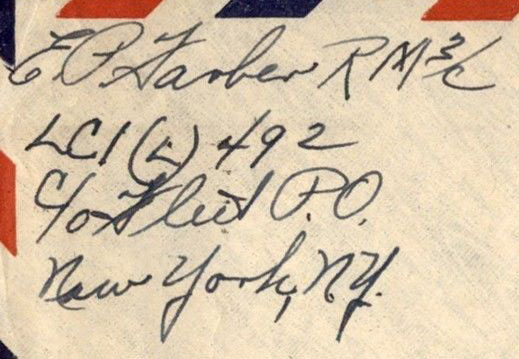 E P Farber RM 3/c
LCI (L) 492
C/o Fleet P.O.
New York, N.Y.